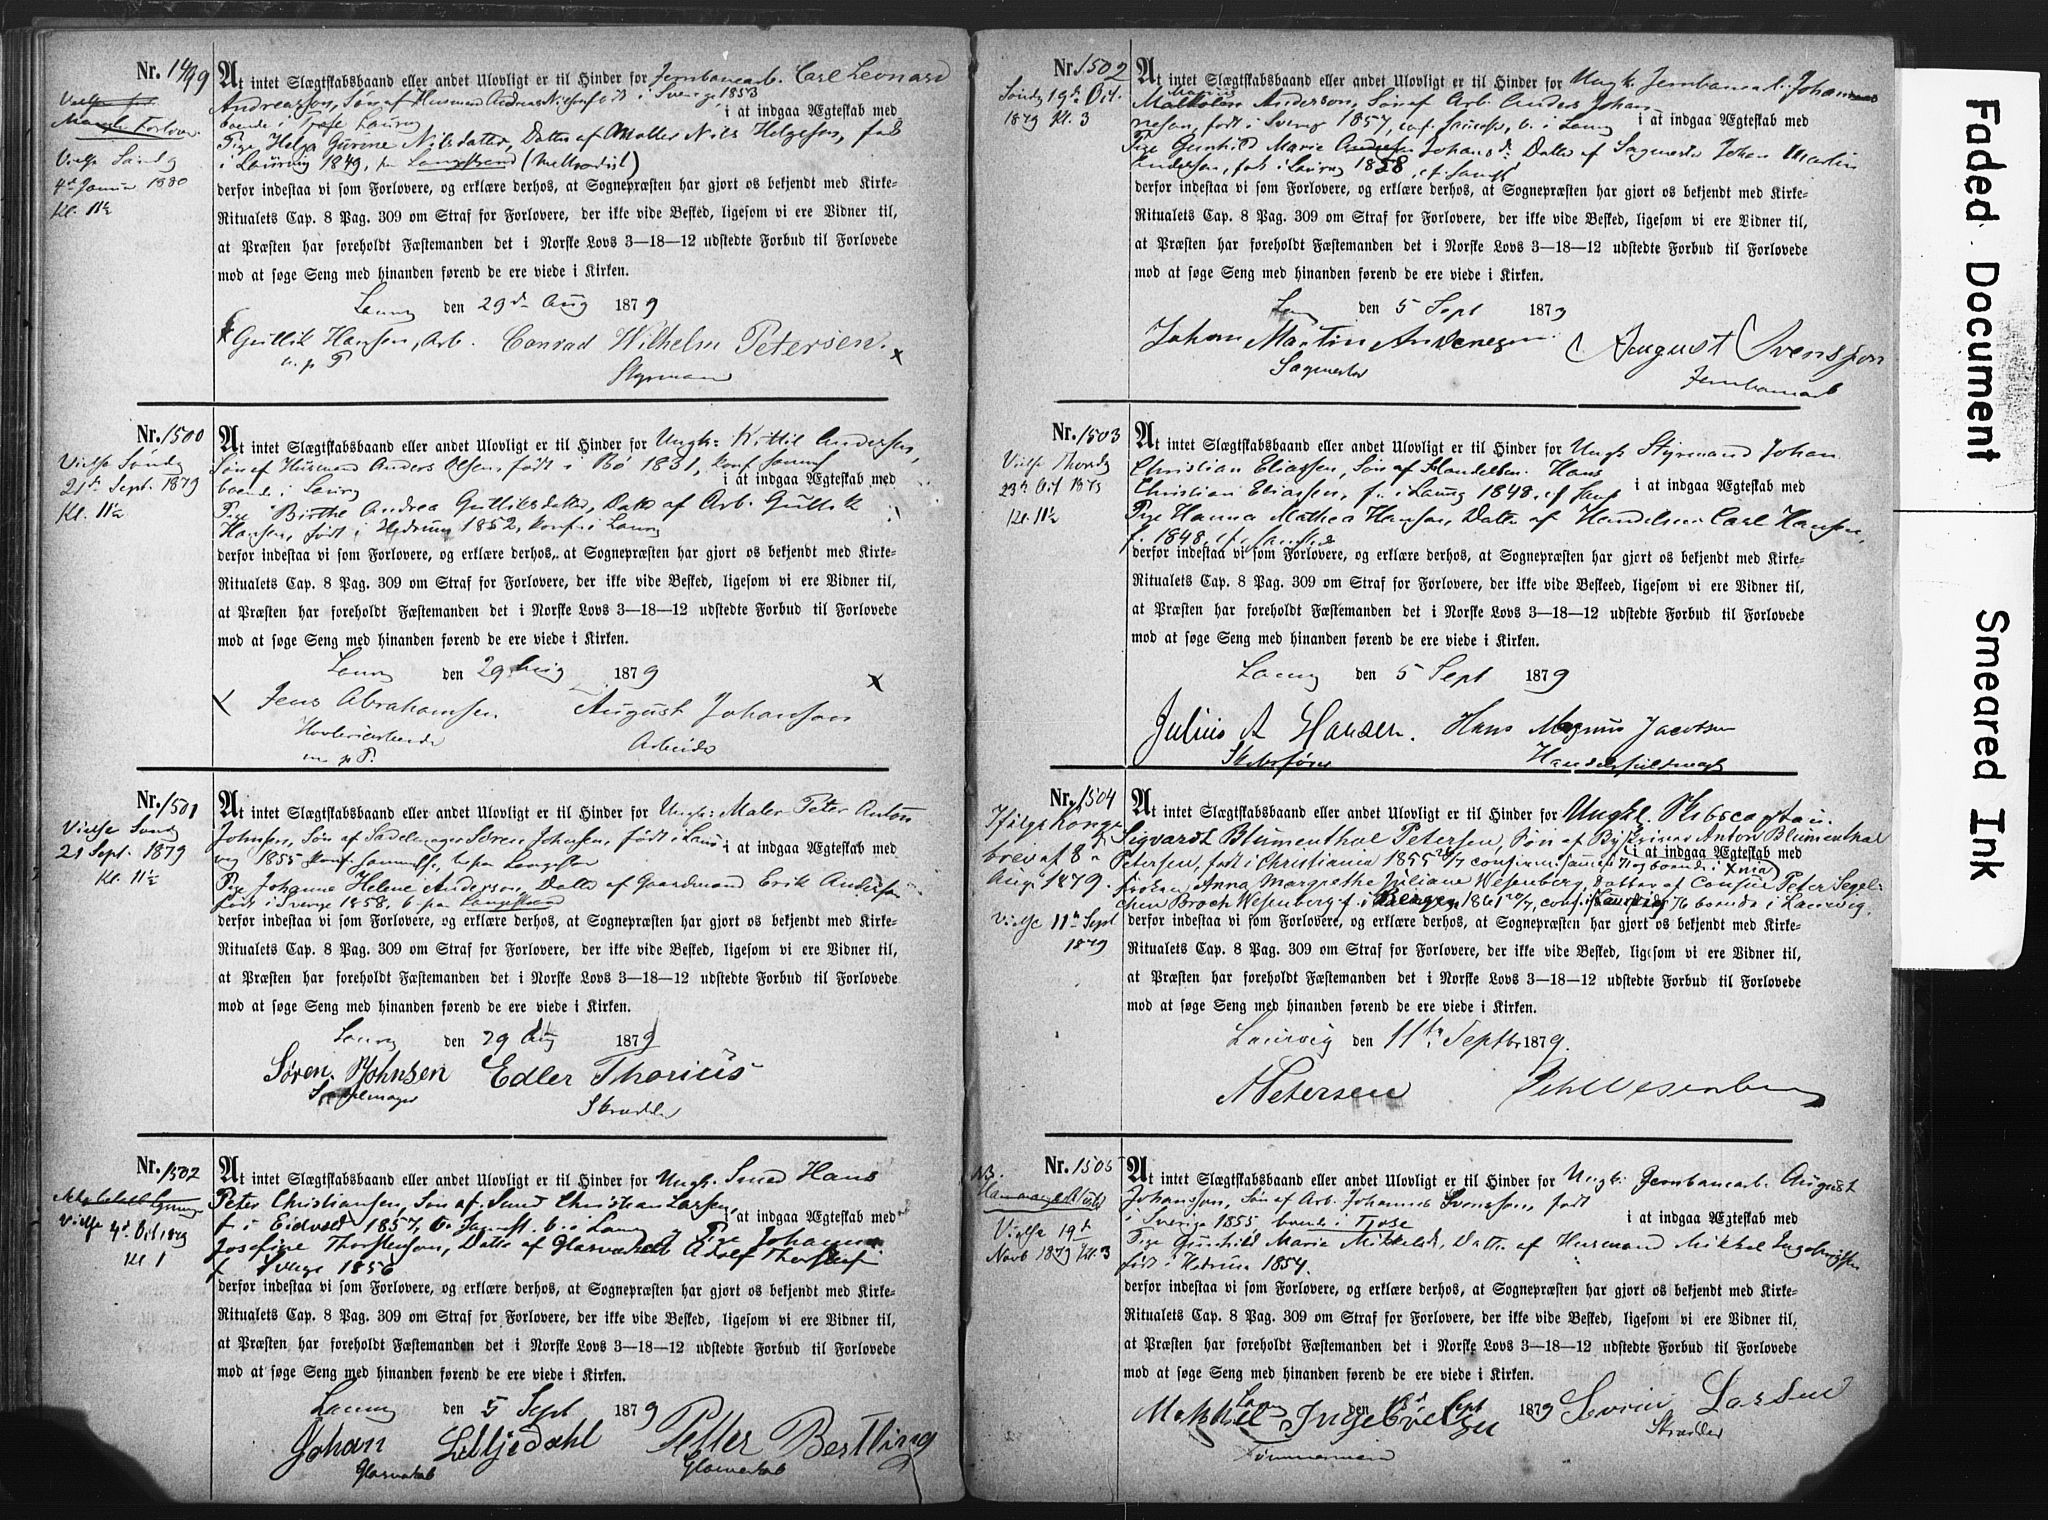 Nr. 1499
At intet Slægtskabsbaand eller andet Ulovligt er til Hinder for Jernbanearb. Carl Leonard
Andreasson, Søn af Husmand Andreas Nielsen født i Sverige 1853
boende i Laurv i at indgaa Ægteskab med
Pige Helga Gurine Nilsdatter, Datter af Møller Nils Helgesen, født
i Laurvig 1849, paa Langestrand (Methodist)
Vielse Søndg
4de Januar 1880
Kl. 11½
derfor indestaa vi som Forlovere, og erklære derhos, at Sognepræsten har gjort os bekjendt med Kirke-
Ritualets Cap. 8 Pag. 309 om Straf for Forlovere, der ikke vide Besked, ligesom vi ere Vidner til,
at Præsten har foreholdt Fæstemanden det i Norske Lovs 3—18—12 udstedte Forbud til Forlovede
mod at søge Seng med hinanden førend de ere viede i Kirken.
Laurv den 29de Aug 1879
Gullik Hansen, Arb. Conrad Wilhelm Petersen.
m. p. P. Styrmand
Nr. 1500
At intet Slægtskabsbaand eller andet Ulovligt er til Hinder for Ungk: Kittil Andersen,
Søn af Husmand Anders Olsen, født i Bø 1831, konf. samms.
boende i Laurv i at indgaa Ægteskab med
Pige Birthe Andrea Gulliksdatter, Datter af Arb. Gullik
Hansen, født i Hedrum 1852, konf. i Laurv
Vielse Søndg
21de Sept. 1879
Kl. 11½
derfor indestaa vi som Forlovere, og erklære derhos, at Sognepræsten har gjort os bekjendt med Kirke-
Ritualets Cap. 8 Pag. 309 om Straf for Forlovere, der ikke vide Besked, ligesom vi ere Vidner til,
at Præsten har foreholdt Fæstemanden det i Norske Lovs 3—18—12 udstedte Forbud til Forlovede
mod at søge Seng med hinanden førend de ere viede i Kirken.
Laurv den 29 Aug 1879
Jens Abrahamsen August Johanson
m p P. Arbeider
Nr. 1501
At intet Slægtskabsbaand eller andet Ulovligt er til Hinder for Ungk: Maler Peter Anton
Johnsen, Søn af Sadelmager Søren Johnsen, født i Laur-
vig 1855 konf. samms. i at indgaa Ægteskab med
Pige Johanne Helene Anderson, Datter af Gaardmand Erik Anderson
født i Sverige 1858, b paa Langestrand
Vielse Søndg
21 Sept. 1879
Kl. 11½
derfor indestaa vi som Forlovere, og erklære derhos, at Sognepræsten har gjort os bekjendt med Kirke-
Ritualets Cap. 8 Pag. 309 om Straf for Forlovere, der ikke vide Besked, ligesom vi ere Vidner til,
at Præsten har foreholdt Fæstemanden det i Norske Lovs 3—18—12 udstedte Forbud til Forlovede
mod at søge Seng med hinanden førend de ere viede i Kirken.
Laurv den 29 Aug 1879
Søren Johnsen Edler Thorius
Sadelmager Skrædder
Nr. 1502
At intet Slægtskabsbaand eller andet Ulovligt er til Hinder for Ungk. Smed Hans
Peter Christiansen, Søn af Smed Christian Larsen,
f. i Eidsvold 1857, b. i Laurv i at indgaa Ægteskab med
Pige Johanne
Josefine Thorstenson, Datter af Glasværksarb Adolf Thorstens
f. i Sverige 1856
Vielse 4de Oct 1879
Kl 1
derfor indestaa vi som Forlovere, og erklære derhos, at Sognepræsten har gjort os bekjendt med Kirke-
Ritualets Cap. 8 Pag. 309 om Straf for Forlovere, der ikke vide Besked, ligesom vi ere Vidner til,
at Præsten har foreholdt Fæstemanden det i Norske Lovs 3—18—12 udstedte Forbud til Forlovede
mod at søge Seng med hinanden førend de ere viede i Kirken.
Laurv den 5 Sept 1879
Johan Lilljedahl Petter Bertling
Nr. 1502
At intet Slægtskabsbaand eller andet Ulovligt er til Hinder for Ungk. Jernbanearb. Johannes
Anderson, Søn af Arb. Anders Johan-
neson, født i Sverige 1857, conf. samst, b. i Laurv i at indgaa Ægteskab med
Pige Gunhild Marie Johansd: Datter af Sagmester Johan Martin
Andersen, født i Laurv 1858, cf. samst
Søndg 19de Oct.
1879 Kl. 3
derfor indestaa vi som Forlovere, og erklære derhos, at Sognepræsten har gjort os bekjendt med Kirke-
Ritualets Cap. 8 Pag. 309 om Straf for Forlovere, der ikke vide Besked, ligesom vi ere Vidner til,
at Præsten har foreholdt Fæstemanden det i Norske Lovs 3—18—12 udstedte Forbud til Forlovede
mod at søge Seng med hinanden førend de ere viede i Kirken.
den 5 Sept 1879
Johan Martin August Svensson
Sagmester Jernbanearb
Nr. 1503
At intet Slægtskabsbaand eller andet Ulovligt er til Hinder for Ungk Styrmand Johan
Christian Eliassen, Søn af Handelsm. Hans
Christian Eliassen, f. i Laurv 1848, cf. samst i at indgaa Ægteskab med
Pige Hanna Mathea Hansen, Datter af Handelsm Carl Hansen,
f. 1848, cf. samsteds
Vielse Thorsdg
23de Oct 1879
Kl. 11½
derfor indestaa vi som Forlovere, og erklære derhos, at Sognepræsten har gjort os bekjendt med Kirke-
Ritualets Cap. 8 Pag. 309 om Straf for Forlovere, der ikke vide Beskeed, ligesom vi ere Vidner til,
at Præsten har foreholdt Fæstemanden det i Norske Lovs 3—18—12 udstedte Forbud til Forlovede
mod at søge Seng med hinanden førend de ere viede i Kirken.
Laurv den 5 Sept 1879
Julius A Hansen. Hans Magnus Jacobsen
Skibsfører Handelsfuldmægt
Nr. 1504
At intet Slægtskabsbaand eller andet Ulovligt er til Hinder for Ungkl. Skibscaptain
Sigvardt Blumenthal Petersen, Søn af Anton Blumenthal
Petersen, født i Christiania 1855 i at indgaa Ægteskab med
Frøken Anna Margrethe Juliane Wesenberg, Datter af Consul Peter Segel-
chen Broch Wesenberg f. i Bergen 1861, conf. boende i Laurvig.
Ifølge Konge-
brev af 8de
Aug. 1879.
Vielse 11te Sept
1879
derfor indestaa vi som Forlovere, og erklære derhos, at Sognepræsten har gjort os bekjendt med Kirke-
Ritualets Cap. 8 Pag. 309 om Straf for Forlovere, der ikke vide Besked, ligesom vi ere Vidner til,
at Præsten har foreholdt Fæstemanden det i Norske Lovs 3—18—12 udstedte Forbud til Forlovede
mod at søge Seng med hinanden førend de ere viede i Kirken.
Laurvig den 11te Septbr 1879.
A Petersen
Nr. 1505
At intet Slægtskabsbaand eller andet Ulovligt er til Hinder for Ungk. Jernbanearb. August
Johansson, Søn af Arb. Johannes Svensson, født
i Sverige 1855 boende i Tjose i at indgaa Ægteskab med
Pige Gunhild Marie Mikkelsd, Datter af Husmand Mikkel Ingebrigtsen
født i Hedrum 1854.
NB.
Vielse 19de
Novb 1879 Kl. 3
derfor indestaa vi som Forlovere, og erklære derhos, at Sognepræsten har gjort os bekjendt med Kirke-
Ritualets Cap. 8 Pag. 309 om Straf for Forlovere, der ikke vide Besked, ligesom vi ere Vidner til,
at Præsten har foreholdt Fæstemanden det i Norske Lovs 3—18—12 udstedte Forbud til Forlovede
mod at søge Seng med hinanden førend de ere viede i Kirken.
Laurv den Sept 1879
Mekkel Larsen
Tømmermand Skrædder
Faded Document
Smeared Ink